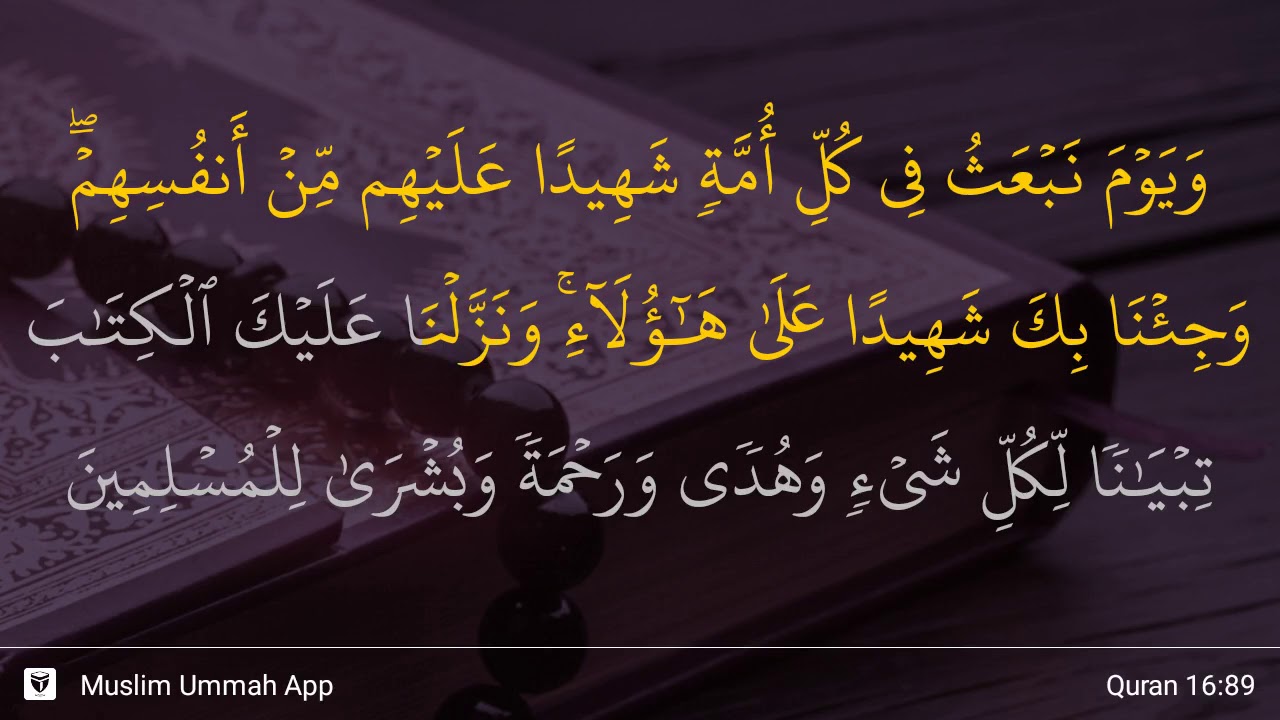 وَيَوْمَ نَبْعَثُ فِى كُلِّ أُمَّةٍ شَهِيدًا عَلَيْهِم مِّنْ أَنفُسِهِمْ ۖ
وَجِئْنَا بِكَ شَهِيدًا عَلَىٰ هَـٰٓؤُلَآءِ ۚ وَنَزَّلْنَا عَلَيْكَ ٱلْكِتَـٰبَ
تِبْيَـٰنًا لِّكُلِّ شَىْءٍ وَهُدًى وَرَحْمَةً وَبُشْرَىٰ لِلْمُسْلِمِينَ
Muslim Ummah App
Quran 16:89